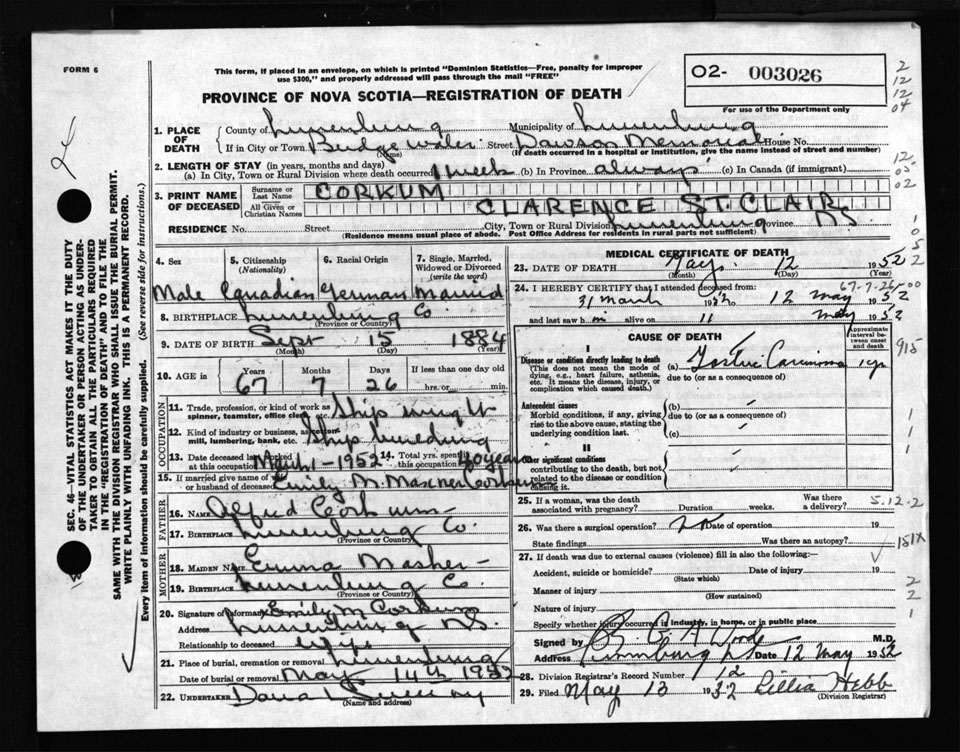 FORM 6
This form, if placed in an envelope, on which is printed "Dominion Statistics—Free, penalty for improper
use $300," and properly addressed will pass through the mail "FREE"
02- 003026
For use of the Department only
PROVINCE OF NOVA SCOTIA—REGISTRATION OF DEATH
1. PLACE OF DEATH
County of Lunenburg Municipality of Lunenburg
If in City or Town Bridgewater Street Dawson Memorial House No.
(Name) (If death occurred in a hospital or institution, give the name instead of street and number)
2. LENGTH OF STAY (in years, months and days)
(a) In City, Town or Rural Division where death occurred 1 week (b) In Province always (c) In Canada (if immigrant)
3. PRINT NAME OF DECEASED
Surname or Last Name CORKUM
All Given or Christian Names CLARENCE ST. CLAIR
RESIDENCE No. Street City, Town or Rural Division Lunenburg Province N.S.
(Residence means usual place of abode. Post Office Address for residents in rural parts not sufficient)
4. Sex 5. Citizenship (Nationality) 6. Racial Origin 7. Single, Married, Widowed or Divorced (write the word)
Male Canadian German Married
8. BIRTHPLACE Lunenburg Co.
(Province or Country)
9. DATE OF BIRTH Sept 15 1884
(Month) (Day) (Year)
10. AGE Years Months Days If less than one day old
67 7 26 hrs. or min.
OCCUPATION
11. Trade, profession, or kind of work as spinner, teamster, office clerk, etc. Ship wright
12. Kind of industry or business, as cotton mill, lumbering, bank, etc. Ship building
13. Date deceased last worked at this occupation March 1-1952 14. Total yrs. spent in this occupation 40 years
15. If married give name of wife or husband of deceased Emily M. Corkum
FATHER
16. NAME Alfred Corkum
17. BIRTHPLACE Lunenburg Co.
(Province or Country)
MOTHER
18. MAIDEN NAME Emma Mosher
19. BIRTHPLACE Lunenburg Co.
(Province or Country)
20. Signature of informant Emily M Corkum
Address Lunenburg N.S.
Relationship to deceased wife
21. Place of burial, cremation or removal Lunenburg
Date of burial or removal May 14th 1952
22. UNDERTAKER Sweeny
(Name and address)
MEDICAL CERTIFICATE OF DEATH
23. DATE OF DEATH May 12 1952
(Month) (Day) (Year)
24. I HEREBY CERTIFY that I attended deceased from:
31 March 1952 to 12 May 1952
and last saw him alive on 11 May 1952
CAUSE OF DEATH
Approximate interval between onset and death
I
Disease or condition directly leading to death
(This does not mean the mode of dying, e.g., heart failure, asthenia, etc. It means the disease, injury, or complication which caused death.)
(a) Gastric Carcinoma 1 yr
due to (or as a consequence of)
Antecedent causes
Morbid conditions, if any, giving rise to the above cause, stating the underlying condition last.
(b)
due to (or as a consequence of)
(c)
II
Other significant conditions
contributing to the death, but not related to the disease or condition causing it.
25. If a woman, was the death associated with pregnancy? Duration weeks. Was there a delivery?
26. Was there a surgical operation? Date of operation 19
State findings Was there an autopsy?
27. If death was due to external causes (violence) fill in also the following:
Accident, suicide or homicide? Date of injury 19
(State which)
Manner of injury
(How sustained)
Nature of injury
Specify whether injury occurred in industry, in home, or in public place
Signed by M.D.
Address Lunenburg Date 12 May 1952
28. Division Registrar's Record Number 12
29. Filed May 13 1952 Lillia Hebb
(Division Registrar)
SEC. 46—VITAL STATISTICS ACT MAKES IT THE DUTY
OF THE UNDERTAKER OR PERSON ACTING AS UNDER-
TAKER TO OBTAIN ALL THE PARTICULARS REQUIRED
IN THE "REGISTRATION OF DEATH" AND TO FILE THE
SAME WITH THE DIVISION REGISTRAR WHO SHALL ISSUE THE BURIAL PERMIT.
WRITE PLAINLY WITH UNFADING INK. THIS IS A PERMANENT RECORD.
Every item of information should be carefully supplied. (See reverse side for instructions.)